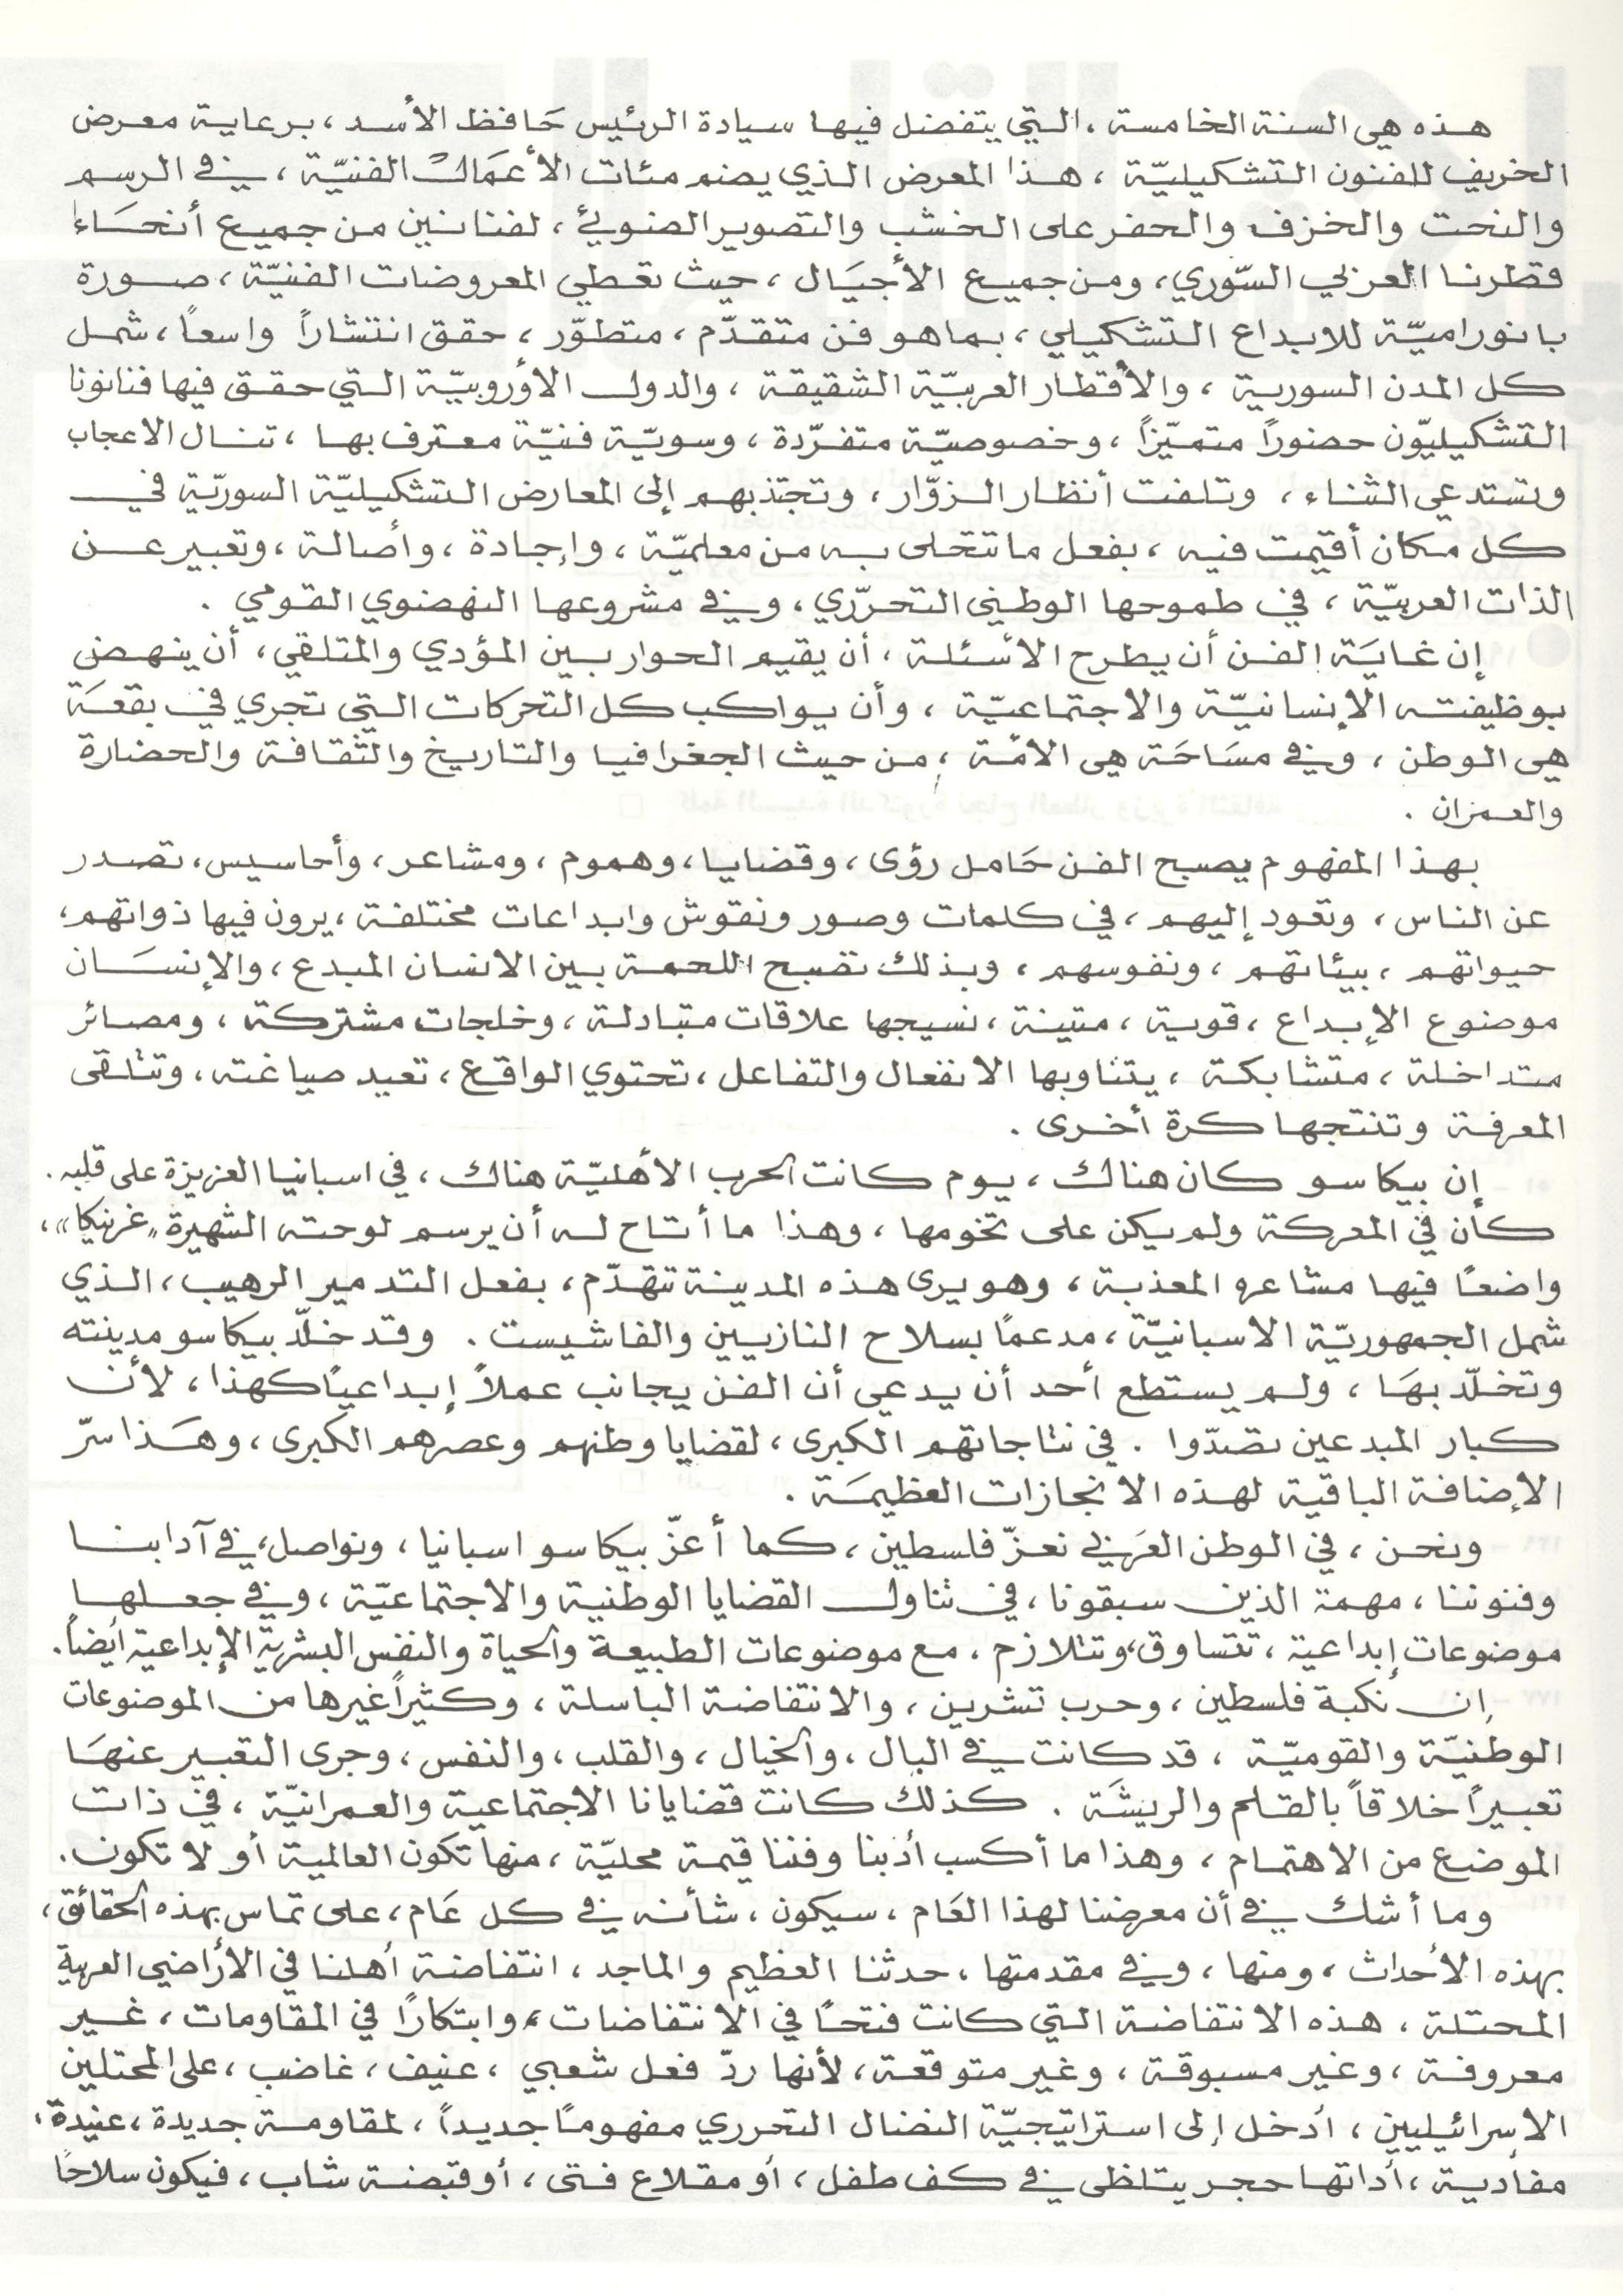 هذه هي السنة الخامسة ، التي يتفضل فيها سيادة الرئيس حَافظ الأسد ، برعاية معرض
الخريف للفنون التشكيليّة ، هذا المعرض الذي يضم مئات الأعمَال الفنيّة ، في الرسم
والنحت والخزف والحفر على الخشب والتصوير الضوئي ، لفنانين من جميع أنحَاء
قطرنا العربي السّوري ، ومن جميع الأجيَال ، حيث تعطي المعروضات الفنيّة ، صورة
بانوراميّة للابداع التشكيلي ، بما هو فن متقدّم ، متطوّر ، حقق انتشاراً واسعاً ، شمل
كل المدن السورية ، والأقطار العربيّة الشقيقة ، والدول الأوروبيّة التي حقق فيها فنانونا
التشكيليّون حضوراً متميّزاً ، وخصوصيّة متفرّدة ، وسويّة فنيّة معترف بها ، تنال الاعجاب
وتستدعي الثناء ، وتلفت أنظار الزوّار ، وتجتذبهم إلى المعارض التشكيليّة السوريّة في
كل مكان أقيمت فيه ، بفعل ما تتحلى به من معلميّة ، وإجادة ، وأصالة ، وتعبير عن
الذات العربيّة ، في طموحها الوطني التحرّري ، وفي مشروعها النهضوي القومي .
إن غايَة الفن أن يطرح الأسئلة ، أن يقيم الحوار بين المؤدي والمتلقي ، أن ينهض
بوظيفته الإنسانيّة والاجتماعيّة ، وأن يواكب كل التحركات التي تجري في بقعَة
هي الوطن ، وفي مسَاحَة هي الأمّة ، من حيث الجغرافيا والتاريخ والثقافة والحضارة
والعمران .
بهذا المفهوم يصبح الفن حَامل رؤى ، وقضايا ، وهموم ، ومشاعر ، وأحاسيس ، تصدر
عن الناس ، وتعود إليهم ، في كلمات وصور ونقوش وابداعات مختلفة ، يرون فيها ذواتهم ،
حيواتهم ، بيئاتهم ، ونفوسهم ، وبذلك تصبح اللحمة بين الانسان المبدع ، والإنسَان
موضوع الإبداع ، قوية ، متينة ، نسيجها علاقات متبادلة ، وخلجات مشتركة ، ومصائر
متداخلة ، متشابكة ، يتناوبها الانفعال والتفاعل ، تحتوي الواقع ، تعيد صياغته ، وتتلقى
المعرفة وتنتجها كرة أخرى .
إن بيكاسو كان هناك ، يوم كانت الحرب الأهليّة هناك ، في اسبانيا العزيزة على قلبه .
كان في المعركة ولم يكن على تخومها ، وهذا ما أتاح له أن يرسم لوحته الشهيرة "غرنيكا" ،
واضعاً فيها مشاعره المعذبة ، وهو يرى هذه المدينة تتهدّم ، بفعل التدمير الرهيب ، الذي
شمل الجمهوريّة الاسبانيّة ، مدعماً بسلاح النازيين والفاشيست . وقد خلّد بيكاسو مدينته
وتخلّد بهَا ، ولم يستطع أحد أن يدعي أن الفن يجانب عملاً إبداعياً كهذا ، لأن
كبار المبدعين تصدّوا . في نتاجاتهم الكبرى ، لقضايا وطنهم وعصرهم الكبرى ، وهَذا سرّ
الإضافة الباقية لهذه الانجازات العظيمَة .
ونحن ، في الوطن العَربي نعزّ فلسطين ، كما أعزّ بيكاسو اسبانيا ، ونواصل ، في آدابنا
وفنوننا ، مهمة الذين سبقونا ، في تناول القضايا الوطنية والاجتماعيّة ، وفي جعلها
موضوعات إبداعية ، تتساوق ، وتتلازم ، مع موضوعات الطبيعة والحياة والنفس البشرية الإبداعية أيضاً .
إن نكبة فلسطين ، وحرب تشرين ، والانتفاضة الباسلة ، وكثيراً غيرها من الموضوعات
الوطنيّة والقوميّة ، قد كانت في البال ، والخيال ، والقلب ، والنفس ، وجرى التعبير عنهَا
تعبيراً خلاقاً بالقلم والريشَة . كذلك كانت قضايانا الاجتماعية والعمرانيّة ، في ذات
الموضع من الاهتمام ، وهذا ما أكسب أدبنا وفننا قيمة محليّة ، منها تكون العالمية أو لا تكون .
وما أشك في أن معرضنا لهذا العَام ، سيكون ، شأنه في كل عَام ، على تماس بهذه الحقائق ،
بهذه الأحداث ، ومنها ، وفي مقدمتها ، حدثنا العظيم والماجد ، انتفاضة أهلنا في الأراضي العربية
المحتلة ، هذه الانتفاضة التي كانت فتحاً في الانتفاضات ، وابتكاراً في المقاومات ، غير
معروفة ، وغير مسبوقة ، وغير متوقعة ، لأنها ردّ فعل شعبي ، عنيف ، غاضب ، على المحتلين
الاسرائيليين ، أدخل إلى استراتيجيّة النضال التحرري مفهوماً جديداً ، لمقاومة جديدة ، عنيدة ،
مفادية ، أداتها حجر يتلظى في كف طفل ، أو مقلاع فتى ، أو قبضة شاب ، فيكون سلاحاً